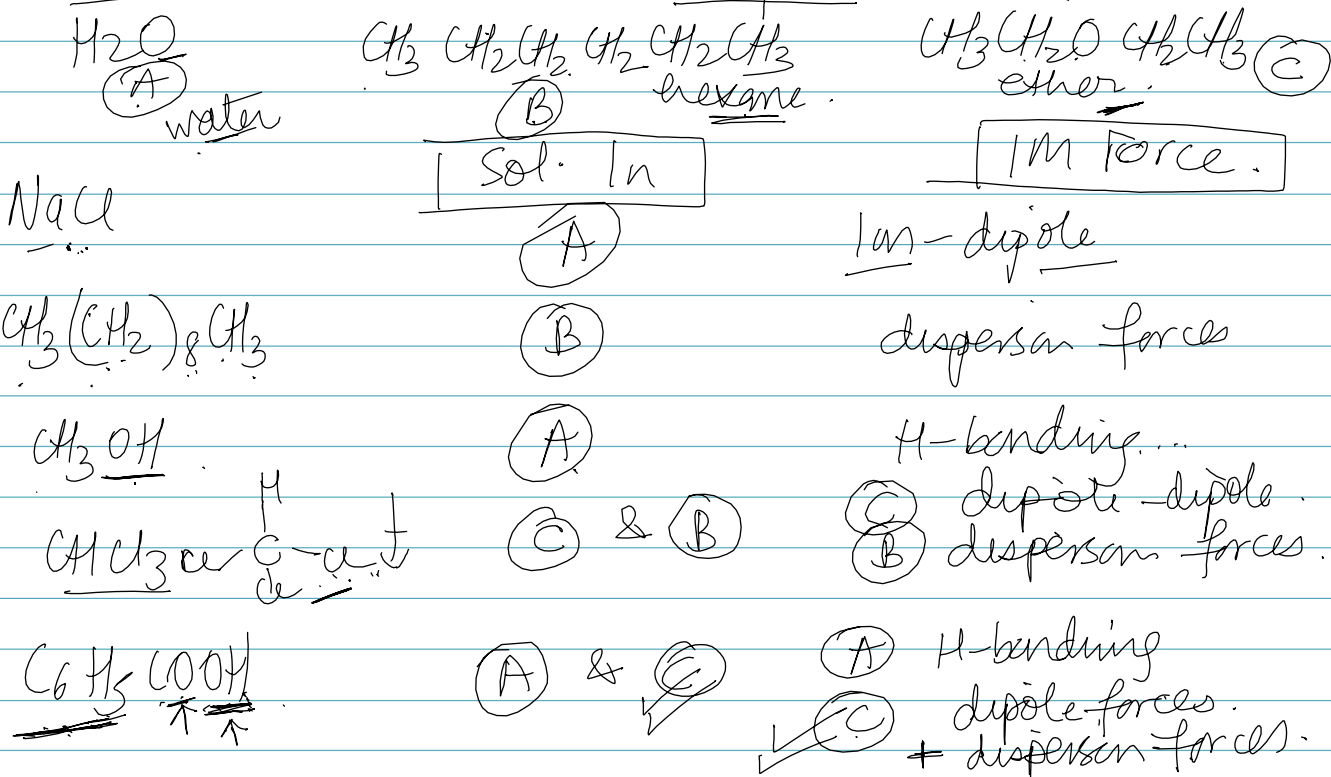 H2O CH3 CH2CH2 CH2 CH2CH3 CH3CH2O CH2CH3 C
A water B hexane. ether.
Sol. In IM Force.
NaCl A Ion-dipole
CH3(CH2)8CH3 B disperson forces
CH3OH. A H-bonding...
CHCl3 Cl-C-Cl H Cl C & B C dipole-dipole.
B disperson forces.
C6H5COOH. A & C A H-bonding
C dipole forces.
+ disperson forces.